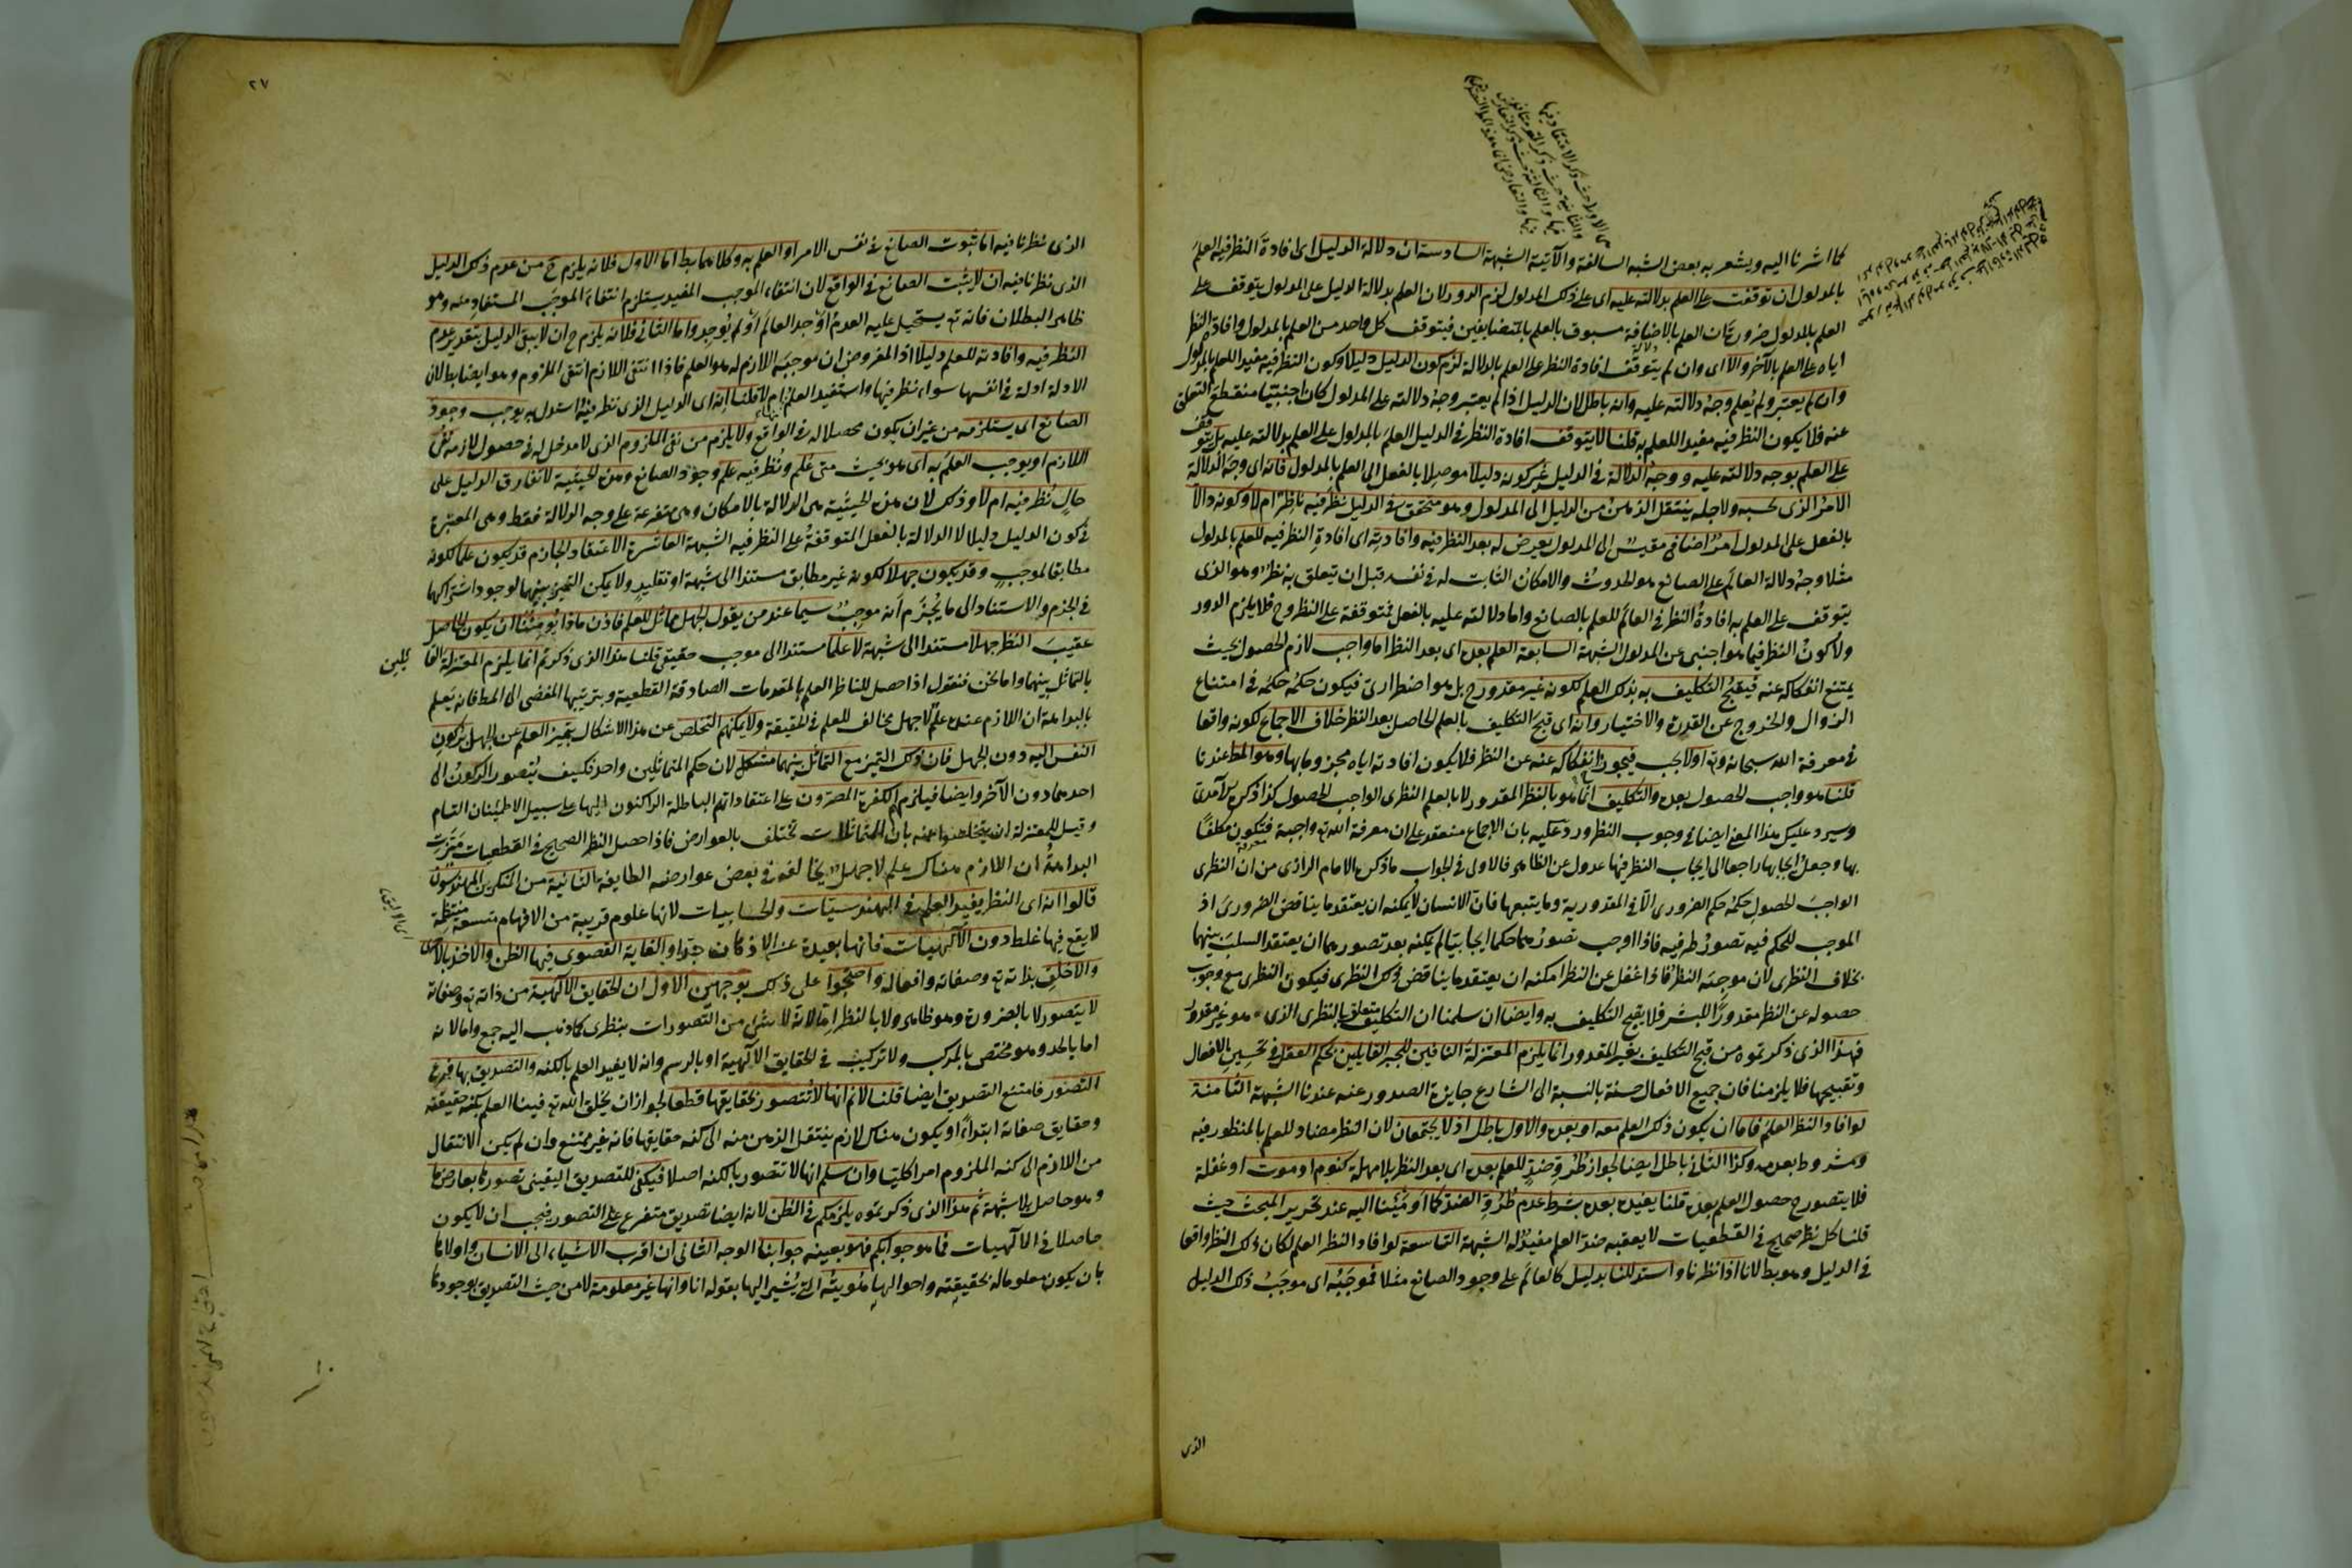 كما اشرنا اليه ويشعر به بعض الشبه السالفة والآتية الشبهة السادسة ان دلالة الدليل اى افادة النظر فيه العلم
بالمدلول ان توقفت على العلم بدلالته عليه اى على ذلك المدلول لزم الدور لان العلم بدلالة الدليل على المدلول يتوقف على
العلم بالمدلول ضرورة ان العلم بالاضافة مسبوق بالعلم بالمتضايفين فيتوقف كل واحد من العلم بالمدلول وافادة النظر
اياه على العلم بالآخر والا اى وان لم يتوقف افادة النظر على العلم بالدلالة لزم كون الدليل دليلا وكون النظر فيه مفيدا للعلم بالمدلول
وان لم يعتبر ولم يُعلم وجه دلالته عليه وانه باطل لان الدليل اذا لم يعتبر وجه دلالته على المدلول كان اجنبيا منقطع التعلق
عنه فلا يكون النظر فيه مفيدا للعلم به قلنا لا يتوقف افادة النظر فى الدليل العلم بالمدلول على العلم بدلالته عليه بل يتوقف
على العلم بوجه دلالته عليه ووجه الدلالة فى الدليل غير كونه دليلا موصلا بالفعل الى العلم بالمدلول فانه اى وجه الدلالة
الامر الذى بحسبه ولاجله ينتقل الذهن من الدليل الى المدلول وهو متحقق فى الدليل نظر فيه ناظر ام لا وكونه دالا
بالفعل على المدلول امر اضافى مقيس الى المدلول يعرض له بعد النظر فيه وافادته اى افادة النظر فيه للعلم بالمدلول
مثلا وجه دلالة العالم على الصانع هو الحدوث والامكان الثابت له فى نفسه قبل ان يتعلق به نظر وهو الذى
يتوقف على العلم به افادة النظر فى العالم للعلم بالصانع واما دلالته عليه بالفعل فمتوقفة على النظر وح فلا يلزم الدور
ولا كون النظر فيما هو اجنبى عن المدلول الشبهة السابعة العلم بعده اى بعد النظر اما واجب لازم الحصول بحيث
يمتنع انفكاكه عنه فيقبح التكليف به بذلك العلم لكونه غير مقدور ح بل هو اضطرارى فيكون حكمه حكمه فى امتناع
الزوال والخروج عن القدرة والاختيار وانه اى قبح التكليف بالعلم الحاصل بعد النظر خلاف الاجماع لكونه واقعا
فى معرفة الله سبحانه وتع اولا يجب فيجوز انفكاكه عنه عن النظر فلا يكون افادته اياه مجزوما بها وهو المط عندنا
قلنا هو واجب الحصول بعده والتكليف انما هو بالنظر المقدور لا بالعلم النظرى الواجب الحصول كذا ذكره الآمدى
وسيرد عليك هذا المعنى ايضا فى وجوب النظر ورد عليه بان الاجماع منعقد على ان معرفة الله تع واجبة فتكون مكلفا
بها وجعل ايجابها راجعا الى ايجاب النظر فيها عدول عن الظاهر فالاولى فى الجواب ما ذكره الامام الرازى من ان النظرى
الواجب الحصول حكمه حكم الضرورى الا فى المقدورية وما يتبعها فان الانسان لا يمكنه ان يعتقد ما يناقض الضرورى اذ
الموجب للحكم فيه تصور طرفيه فاذا اوجب تصورهما حكما ايجابيا لم يمكنه بعد تصورهما ان يعتقد السلب بينهما
بخلاف النظرى لان موجبه النظر فاذا غفل عن النظر امكنه ان يعتقد ما يناقض ذلك النظرى فيكون النظرى مع وجوب
حصوله عن النظر مقدورا للبشر فلا يقبح التكليف به وايضا ان سلمنا ان التكليف متعلق بالنظرى الذى هو غير مقدور
فهذا الذى ذكرتموه من قبح التكليف بغير المقدور انما يلزم المعتزلة النافين للجبر القايلين بحكم العقل فى تحسين الافعال
وتقبيحها فلا يلزمنا فان جميع الافعال حسنة بالنسبة الى الشارع جايزة الصدور عنه عندنا الشبهة الثامنة
لو افاد النظر العلم فاما ان يكون ذلك العلم معه او بعده والاول باطل اذ لا يجتمعان لان النظر مضاد للعلم بالمنظور فيه
ومشروط بعدمه وكذا الثانى باطل ايضا لجواز طرو ضد للعلم بعده اى بعد النظر بلا مهلة كنوم او موت او غفلة
فلا يتصور ح حصول العلم بعده قلنا يفيده بعده بشرط عدم طرو الضد كما اومأنا اليه عند تحرير المبحث حيث
قلنا كل نظر صحيح فى القطعيات لا يعقبه ضد العلم مفيد له الشبهة التاسعة لو افاد النظر العلم لكان ذلك النظر واقعا
فى الدليل وهو بط لانا اذا نظرنا واستدللنا بدليل كالعالم على وجود الصانع مثلا فموجبه اى موجب ذلك الدليل
الذى
٢٧
الذى نظرنا فيه اما ثبوت الصانع فى نفس الامر او العلم به وكلاهما بط اما الاول فلانه يلزم ح من عدم ذلك الدليل
الذى نظرنا فيه ان لا يثبت الصانع فى الواقع لان انتفاء الموجب المفيد يستلزم انتفاء الموجب المستفاد منه وهو
ظاهر البطلان فانه تع يستحيل عليه العدم أوجد العالم أو لم يوجد واما الثانى فلانه يلزم ح ان لا يبقى الدليل بتقدير عدم
النظر فيه وافادته للعلم دليلا اذ المفروض ان موجبه اللازم له هو العلم فاذا انتفى اللازم انتفى الملزوم وهو ايضا بط لان
الادلة ادلة فى انفسها سواء نظر فيها واستفيد العلم منها ام لا قلنا انه اى الدليل الذى نظر فيه واستدل به يوجب وجود
الصانع اى يستلزمه من غير ان يكون محصلا له فى الواقع ولا يلزم من نفى الملزوم الذى لا مدخل له فى حصول لازمه نفى
اللازم او يوجب العلم به اى هو بحيث متى علم ونظر فيه علم وجود الصانع وهذه الحيثية لا تفارق الدليل على
حال نظر فيه ام لا وذلك لان هذه الحيثية هى الدلالة بالامكان وهى متفرعة على وجه الدلالة فقط وهى المعتبرة
فى كون الدليل دليلا لا الدلالة بالفعل المتوقفة على النظر فيه الشبهة العاشرة الاعتقاد الجازم قد يكون علما لكونه
مطابقا لموجب وقد يكون جهلا لكونه غير مطابق مستندا الى شبهة او تقليد ولا يمكن التميز بينهما لوجود اشتراكهما
فى الجزم والاستناد الى ما يجزم انه موجب سيما عند من يقول الجهل مماثل للعلم فاذن ماذا يؤمننا ان يكون الحاصل
عقيب النظر جهلا مستندا الى شبهة لا علما مستندا الى موجب حقيقى قلنا هذا الذى ذكرتم انما يلزم المعتزلة القا
يلين
بالتماثل بينهما واما نحن فنقول اذا حصل للناظر العلم بالمقدمات الصادقة القطعية وبترتيبها المفضى الى المط فانه يعلم
بالبداهة ان اللازم عنده علم لا جهل مخالف للعلم فى الحقيقة ولا يمكنهم التخلص عن هذا الاشكال بتميز العلم عن الجهل بركون
النفس اليه دون الجهل فان ذلك التميز مع التماثل بينهما مشكل لان حكم المتماثلين واحد فكيف يتصور الركون الى
احدهما دون الآخر وايضا فيلزمهم الكفرة المصرون على اعتقاداتهم الباطلة الراكنون اليها على سبيل الاطمئنان التام
وقيل للمعتزلة ان يتخلصوا عنه بان المتماثلات تختلف بالعوارض فاذا حصل النظر الصحيح فى القطعيات ميزت
البداهة ان اللازم هناك علم لا جهل يخالفه فى بعض عوارضه الطايفة الثانية من المنكرين المهندسون
قالوا انه اى النظر يفيد العلم فى الهندسيات والحسابيات لانها علوم قريبة من الافهام متسقة منتظمة
لا يقع فيها غلط دون الالهيات فانها بعيدة عن الاذهان جدا والغاية القصوى فيها الظن والاخذ بالاحرى
والاخلق بذاته تع وصفاته وافعاله واحتجوا على ذلك بوجهين الاول ان الحقايق الالهية من ذاته تع وصفاته
لا يتصور لا بالضرورة وهو ظاهر ولا بالنظر اما لانه لا شئ من التصورات بنظرى كما ذهب اليه جمع واما لانه
اما بالحد وهو مختص بالمركب ولا تركيب فى الحقايق الالهية او بالرسم وانه لا يفيد العلم بالكنه والتصديق بها فرع
التصور فامتنع التصديق ايضا قلنا لا نم انها لا تتصور بحقايقها قطعا لجواز ان يخلق الله تع فينا العلم بكنه حقيقته
وحقايق صفاته ابتداء او يكون هناك لازم ينتقل الذهن منه الى كنه حقايقها فانه غير ممتنع وان لم يكن الانتقال
من اللازم الى كنه الملزوم امرا كليا وان سلم انها لا تتصور بالكنه اصلا فيكفى للتصديق اليقينى تصورها بعارض ما
وهو حاصل بلا شبهة ثم هذا الذى ذكرتموه يلزمكم فى الظن لانه ايضا تصديق متفرع على التصور فيجب ان لا يكون
حاصلا فى الالهيات فما هو جوابكم فهو بعينه جوابنا الوجه الثانى ان اقرب الاشياء الى الانسان واولاها
بان يكون معلوما له بحقيقته واحوالها هويته التى يشير اليها بقوله انا وانها غير معلومة لا من حيث التصديق بوجودها